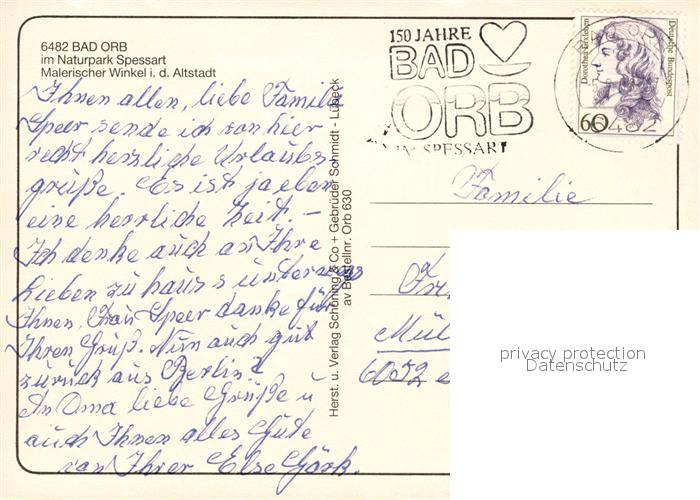 6482 BAD ORB
im Naturpark Spessart
Malerischer Winkel i. d. Altstadt
Ihnen allen, liebe Familie
Speer sende ich von hier
recht herzliche Urlaubs-
grüße. Es ist ja eben
eine herrliche Zeit. –
Ich denke auch an Ihre
Lieben zu haus u unterwegs
Ihnen, Frau Speer danke für
Ihren Gruß. Nun auch gut
zurück aus Berlin?
An Oma liebe Grüße u
auch Ihnen alles Gute
von Ihrer Else
Herst. u. Verlag Schöning & Co + Gebrüder Schmidt - Lübeck
av Bestellnr. Orb 630
150 JAHRE
BAD
ORB
IM SPESSART
Dorothea Erxleben
Deutsche Bundespost
60
6482
Familie
Fr
Mül
6052
privacy protection
Datenschutz